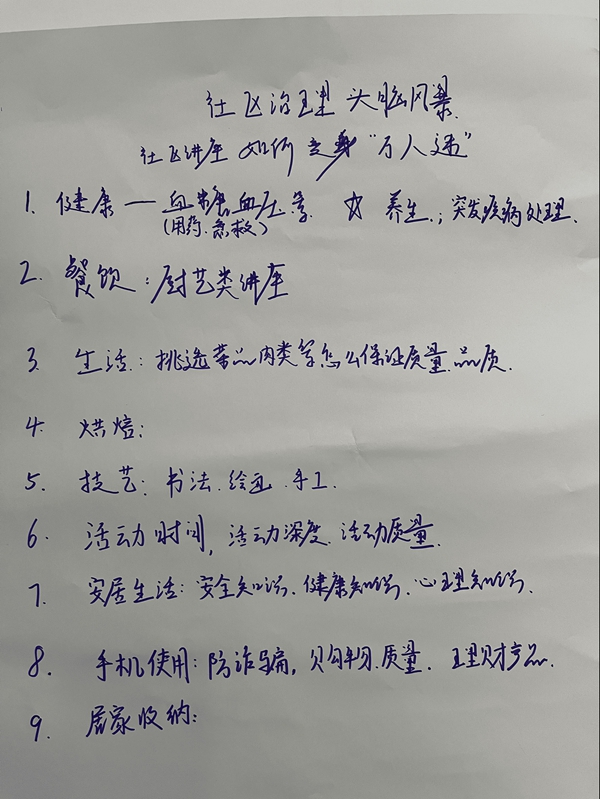 社区治理 头脑风暴.
社区讲座 如何变身“万人迷”
1. 健康 — 血糖.血压等. ☆ 养生.; 突发疾病处理.
(用药.急救)
2. 餐饮: 厨艺类讲座
3. 生活: 挑选菜品肉类等怎么保证质量.品质.
4. 烘焙:
5. 技艺: 书法.绘画.手工.
6. 活动时间, 活动深度.活动质量.
7. 安居生活: 安全知识、健康知识、心理知识、
8. 手机使用: 防诈骗, 购物.质量. 理财产品.
9. 居家收纳: